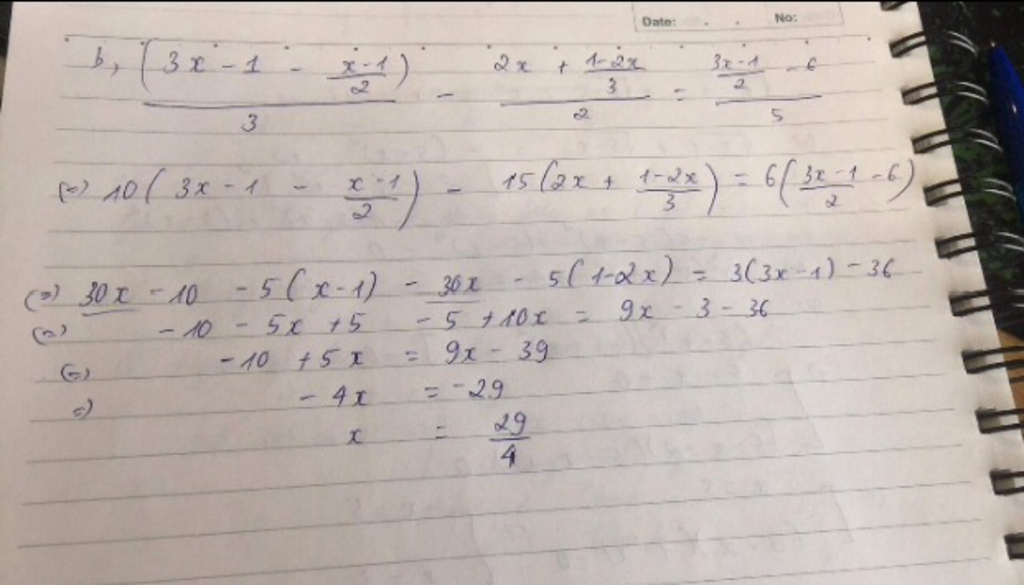 Date: . . No:
b, (3x - 1 - \frac{x-1}{2}) / 3 - (2x + \frac{1-2x}{3}) / 2 = (\frac{3x-1}{2} - 6) / 5
(=) 10(3x - 1 - \frac{x-1}{2}) - 15(2x + \frac{1-2x}{3}) = 6(\frac{3x-1}{2} - 6)
(=) 30x - 10 - 5(x-1) - 30x - 5(1-2x) = 3(3x-1) - 36
(=) -10 - 5x + 5 - 5 + 10x = 9x - 3 - 36
(=) -10 + 5x = 9x - 39
=) - 4x = -29
x = \frac{29}{4}